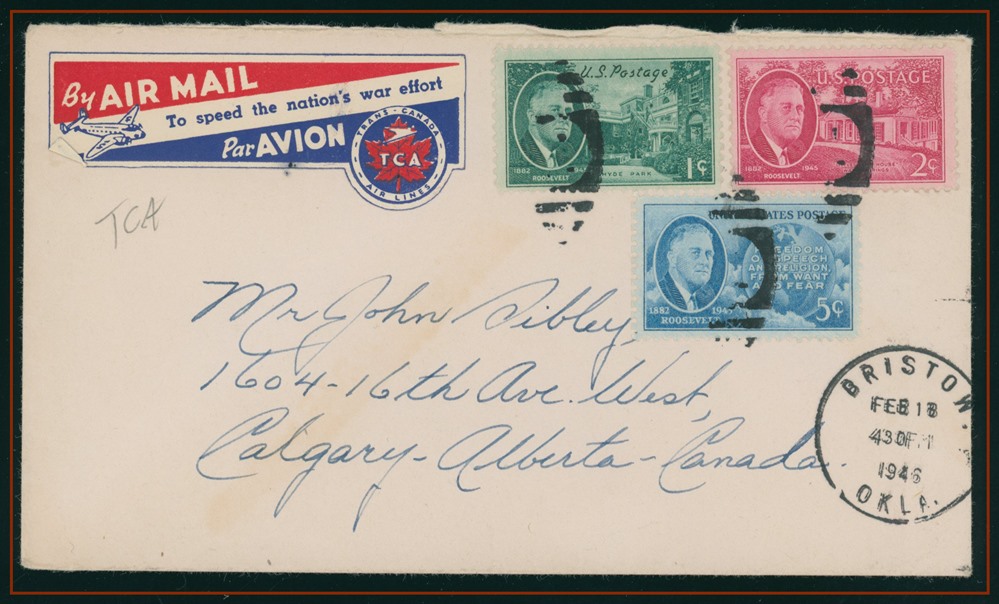 By AIR MAIL
To speed the nation's war effort
Par AVION
TRANS-CANADA
TCA
AIR LINES
TCA
U.S. Postage
1882 1945
ROOSEVELT
HYDE PARK
1¢
U.S. POSTAGE
1882 1945
ROOSEVELT
HOUSE
2¢
UNITED STATES POSTAGE
FREEDOM
OF SPEECH
AND RELIGION,
FROM WANT
AND FEAR
1882 1945
ROOSEVELT
5¢
Mr John Sibley,
1604-16th Ave. West,
Calgary-Alberta-Canada.
BRISTOW,
FEB 18
430 PM
1946
OKLA.